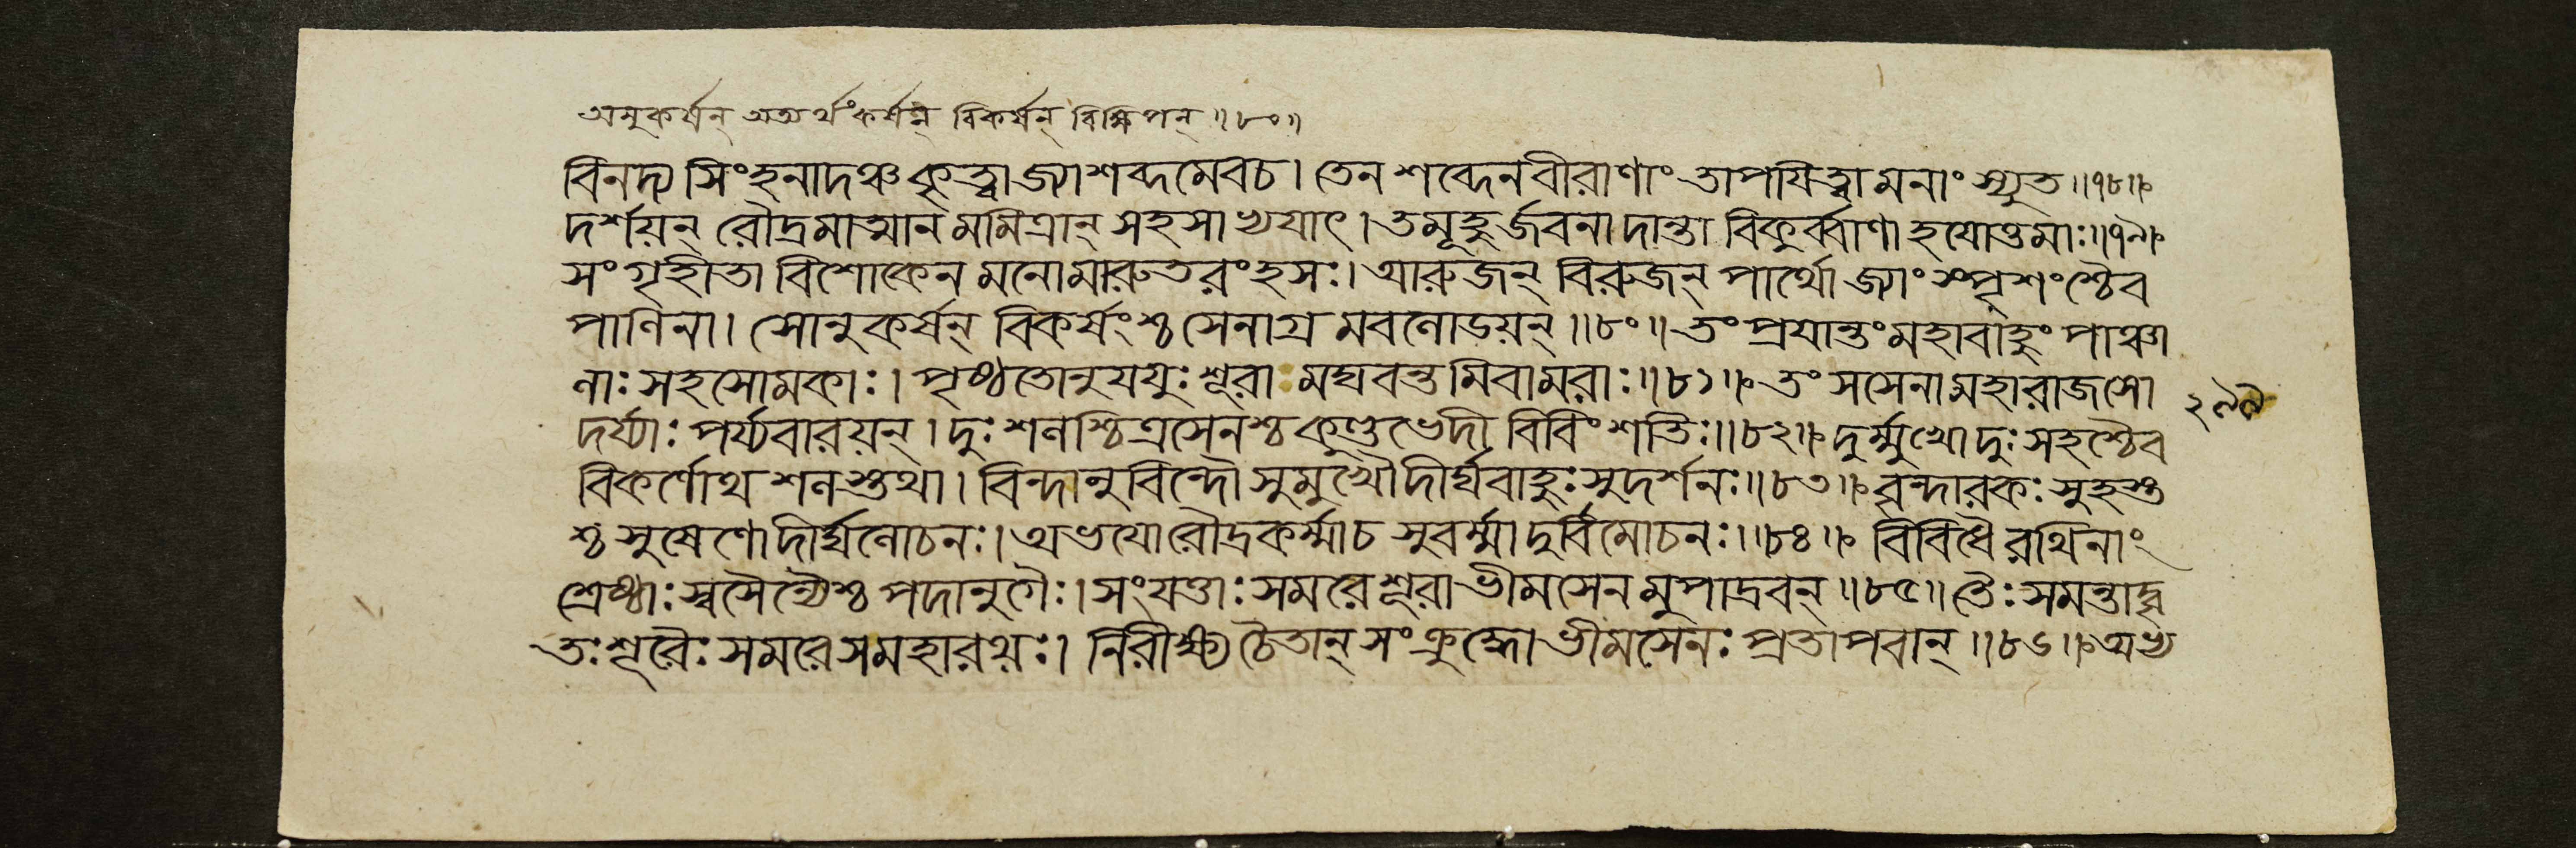 অনুকর্ষন্ অত্যর্থংকর্ষন্ বিকর্ষন্ বিক্ষিপন্॥৮০॥
বিনদ্য সিংহনাদঞ্চ কৃত্বা জ্যাশব্দমেবচ। তেন শব্দেনবীরাণাং তাপযিত্বা মনাং স্যুত॥৭৮॥
দর্শয়ন্ রৌদ্রমাত্মান মমিত্রান্ সহসাখ্যযাৎ। তমূহুর্জবনা দান্তা বিকুর্ব্বাণা হযোত্তমাঃ॥৭৯॥
সংগৃহীতা বিশোকেন মনোমারুতরংহসঃ। আরুজন্ বিরুজন্ পার্থো জ্যাং স্পৃশংশ্চৈব
পাণিনা। সোনুকর্ষন্ বিকর্ষংশ্চ সেনাগ্র মবলোডয়ন্॥৮০॥ তং প্রযান্তং মহাবাহুং পাঞ্চা
লাঃ সহসোমকাঃ। পৃষ্ঠতোনুযযুঃ শূরা মঘবন্তমিবামরাঃ॥৮১॥ তং সসেনা মহারাজসো
দর্য্যাঃ পর্য্যবারয়ন্। দুঃশলশ্চিত্রসেনশ্চ কুণ্ডভেদী বিবিংশতিঃ॥৮২॥ দুর্ম্মুখো দুঃসহশ্চৈব
বিকর্ণোথ শলস্তথা। বিন্দানুবিন্দৌ সুমুখৌ দীর্ঘবাহুঃ সুদর্শনঃ॥৮৩॥ বৃন্দারকঃ সুহস্ত
শ্চ সুষেণো দীর্ঘলোচনঃ। অভযোরৌদ্রকর্ম্মাচ সুবর্ম্মা দুর্বিমোচনঃ॥৮৪॥ বিবিধৈ রথিনাং
শ্রেষ্ঠাঃ স্বসৈন্যৈশ্চ পদানুগৈঃ। সংযত্তাঃ সমরেশূরা ভীমসেন মুপাদ্রবন্॥৮৫॥ তৈঃ সমন্তাদ্বৃ
তঃ শূরৈঃ সমরেসমহারথঃ। নিরীক্ষ্য চৈতান্ সংক্রুদ্ধো ভীমসেনঃ প্রতাপবান্॥৮৬॥ অভ্য